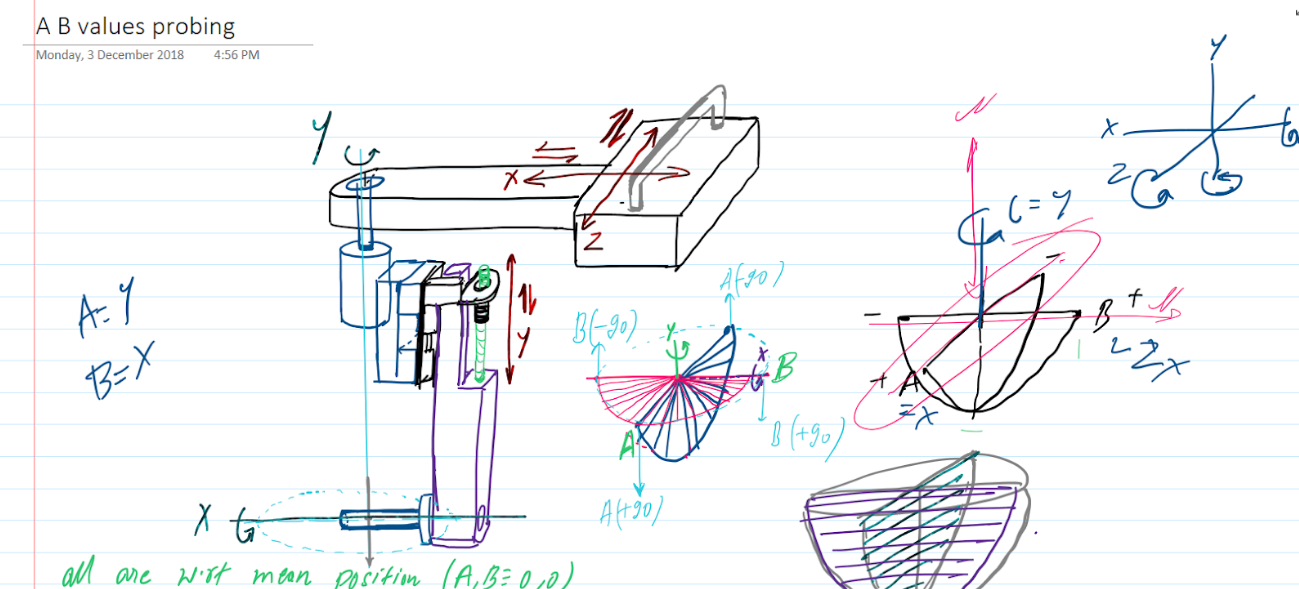 A B values probing
Monday, 3 December 2018 4:56 PM
Y
X
Z
Y
X
Z
C = Y
A = Y
B = X
Y
B
+
-
-
+
A
= X
X
A(-90)
B(-90)
Y
X
B
A
B(+90)
A(+90)
X
all are w.r.t mean position (A,B = 0,0)